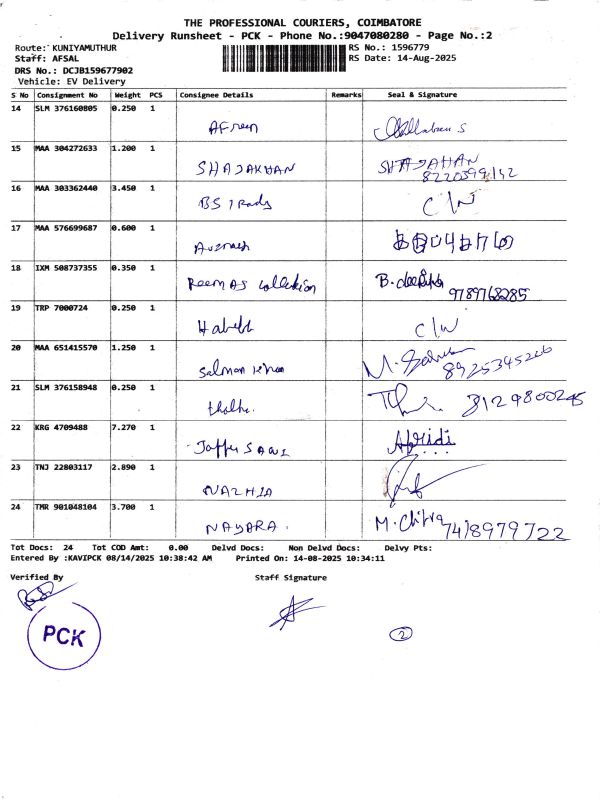 THE PROFESSIONAL COURIERS, COIMBATORE
Delivery Runsheet - PCK - Phone No.:9047080280 - Page No.:2
Route: KUNIYAMUTHUR RS No.: 1596779
Staff: AFSAL RS Date: 14-Aug-2025
DRS No.: DCJB159677902
Vehicle: EV Delivery
S No Consignment No Weight PCS Consignee Details Remarks Seal & Signature
14 SLM 376160805 0.250 1 AFreen
15 MAA 304272633 1.200 1 SHAJAKHAN SHAJAHAN
16 MAA 303362440 3.450 1 BS C/W
17 MAA 576699687 0.600 1
18 IXM 508737355 0.350 1 ReemAS collection B.
9789768285
19 TRP 7000724 0.250 1 C/W
20 MAA 651415570 1.250 1 Salman khan
8925345226
21 SLM 376158948 0.250 1 thalha. 8129800245
22 KRG 4709488 7.270 1 Afridi
23 TNJ 22803117 2.890 1 NAZHIA
24 TMR 901048104 3.700 1 NAYARA. M. Chitra 7418979722
Tot Docs: 24 Tot COD Amt: 0.00 Delvd Docs: Non Delvd Docs: Delvy Pts:
Entered By :KAVIPCK 08/14/2025 10:38:42 AM Printed On: 14-08-2025 10:34:11
Verified By Staff Signature
PCK
2